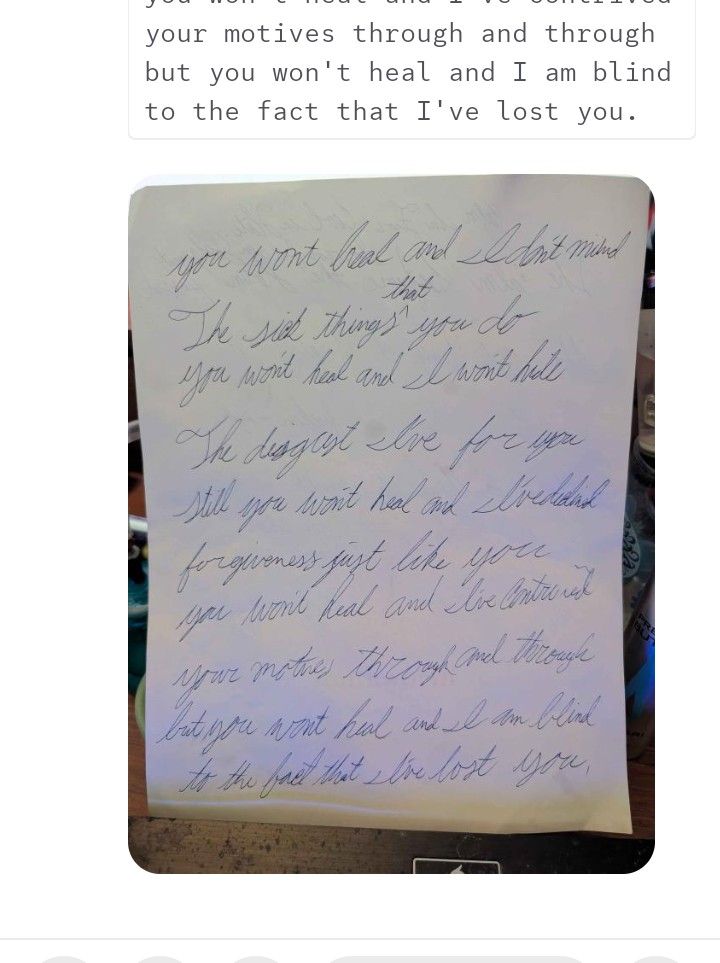 you won't heal and I've contrived
your motives through and through
but you won't heal and I am blind
to the fact that I've lost you.
you wont heal and I don't mind
that
The sick things ^ you do
you won't heal and I won't hide
The disgust I've for you
still you won't heal and I've
forgiveness just like you
you won't heal and I've contrived
your motives through and through
but you wont heal and I am blind
to the fact that I've lost you.